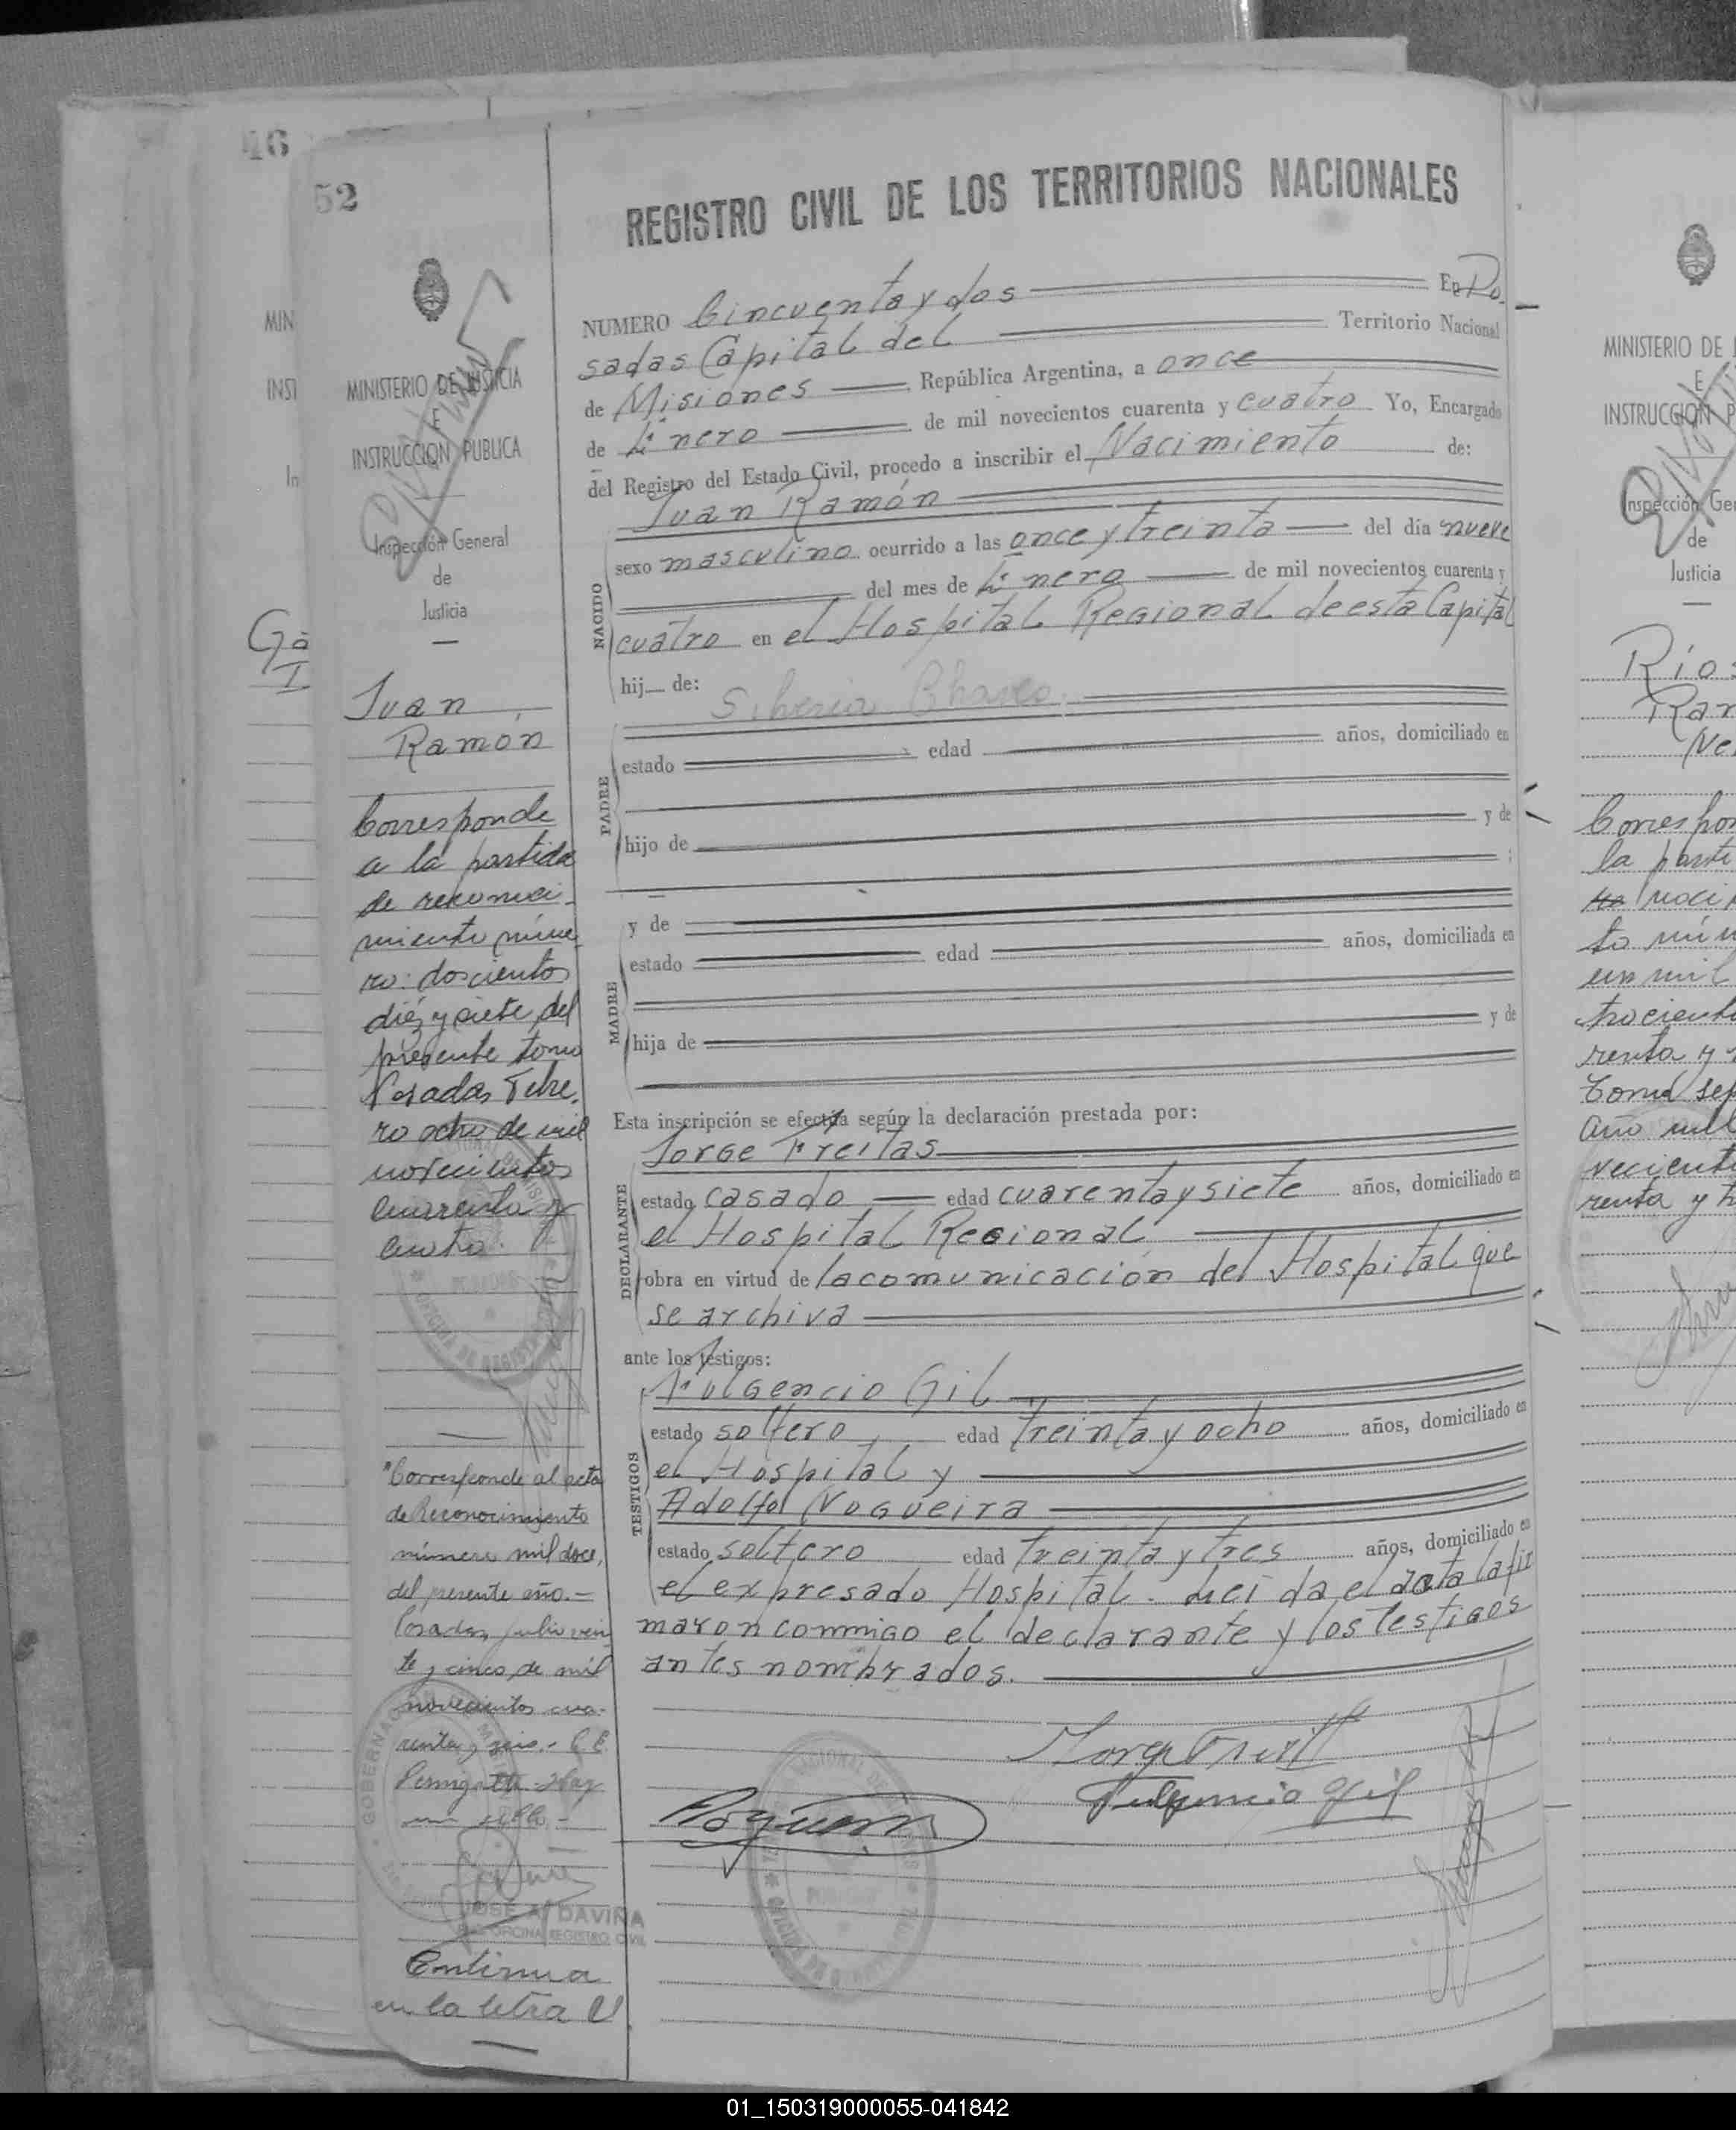 46
52
REGISTRO CIVIL DE LOS TERRITORIOS NACIONALES
NUMERO Cincuenta y dos En Po
sadas Capital del Territorio Nacional
de Misiones República Argentina, a once
de Enero de mil novecientos cuarenta y cuatro Yo, Encargado
del Registro del Estado Civil, procedo a inscribir el Nacimiento de:
Juan Ramón
NACIDO
sexo masculino ocurrido a las once y treinta del día nueve
del mes de Enero de mil novecientos cuarenta y
cuatro en el Hospital Regional de esta Capital
hij de:
PADRE
estado edad años, domiciliado en
hijo de y de
y de
MADRE
estado edad años, domiciliada en
hija de y de
Esta inscripción se efectúa según la declaración prestada por:
Jorge Freitas
DECLARANTE
estado casado edad cuarenta y siete años, domiciliado en
el Hospital Regional
obra en virtud de la comunicación del Hospital que
se archiva
ante los testigos:
Fulgencio Gil
TESTIGOS
estado soltero edad treinta y ocho años, domiciliado en
el Hospital y
Adolfo Nogueira
estado soltero edad treinta y tres años, domiciliado en
el expresado Hospital. Leida el acta la fir
maron conmigo el declarante y los testigos
antes nombrados.
Fulgencio Gil
MINISTERIO DE JUSTICIA
E
INSTRUCCION PUBLICA
Inspección General
de
Justicia
Juan
Ramón
Corresponde
a la partida
de reconoci-
miento núme
ro: doscientos
diéz y siete, del
presente tomo
Posadas Febre.
ro ocho de mil
novecientos
cuarenta y
cuatro.
"Corresponde al acta
de Reconocimiento
número mil doce,
del presente año.-
Posadas, julio vein
te y cinco de mil
novecientos cua-
renta y seis.-
JOSE A. DAVIÑA
OFICINA REGISTRO CIVIL
Continua
en la letra U
MIN
INST
In
MINISTERIO DE J
E
INSTRUCCION P
Inspección Ge
de
Justicia
Ríos
Ram
Correspon
la parti
to núm
un mil
renta y
Tomo sep
Año mil
renta y
01_150319000055-041842